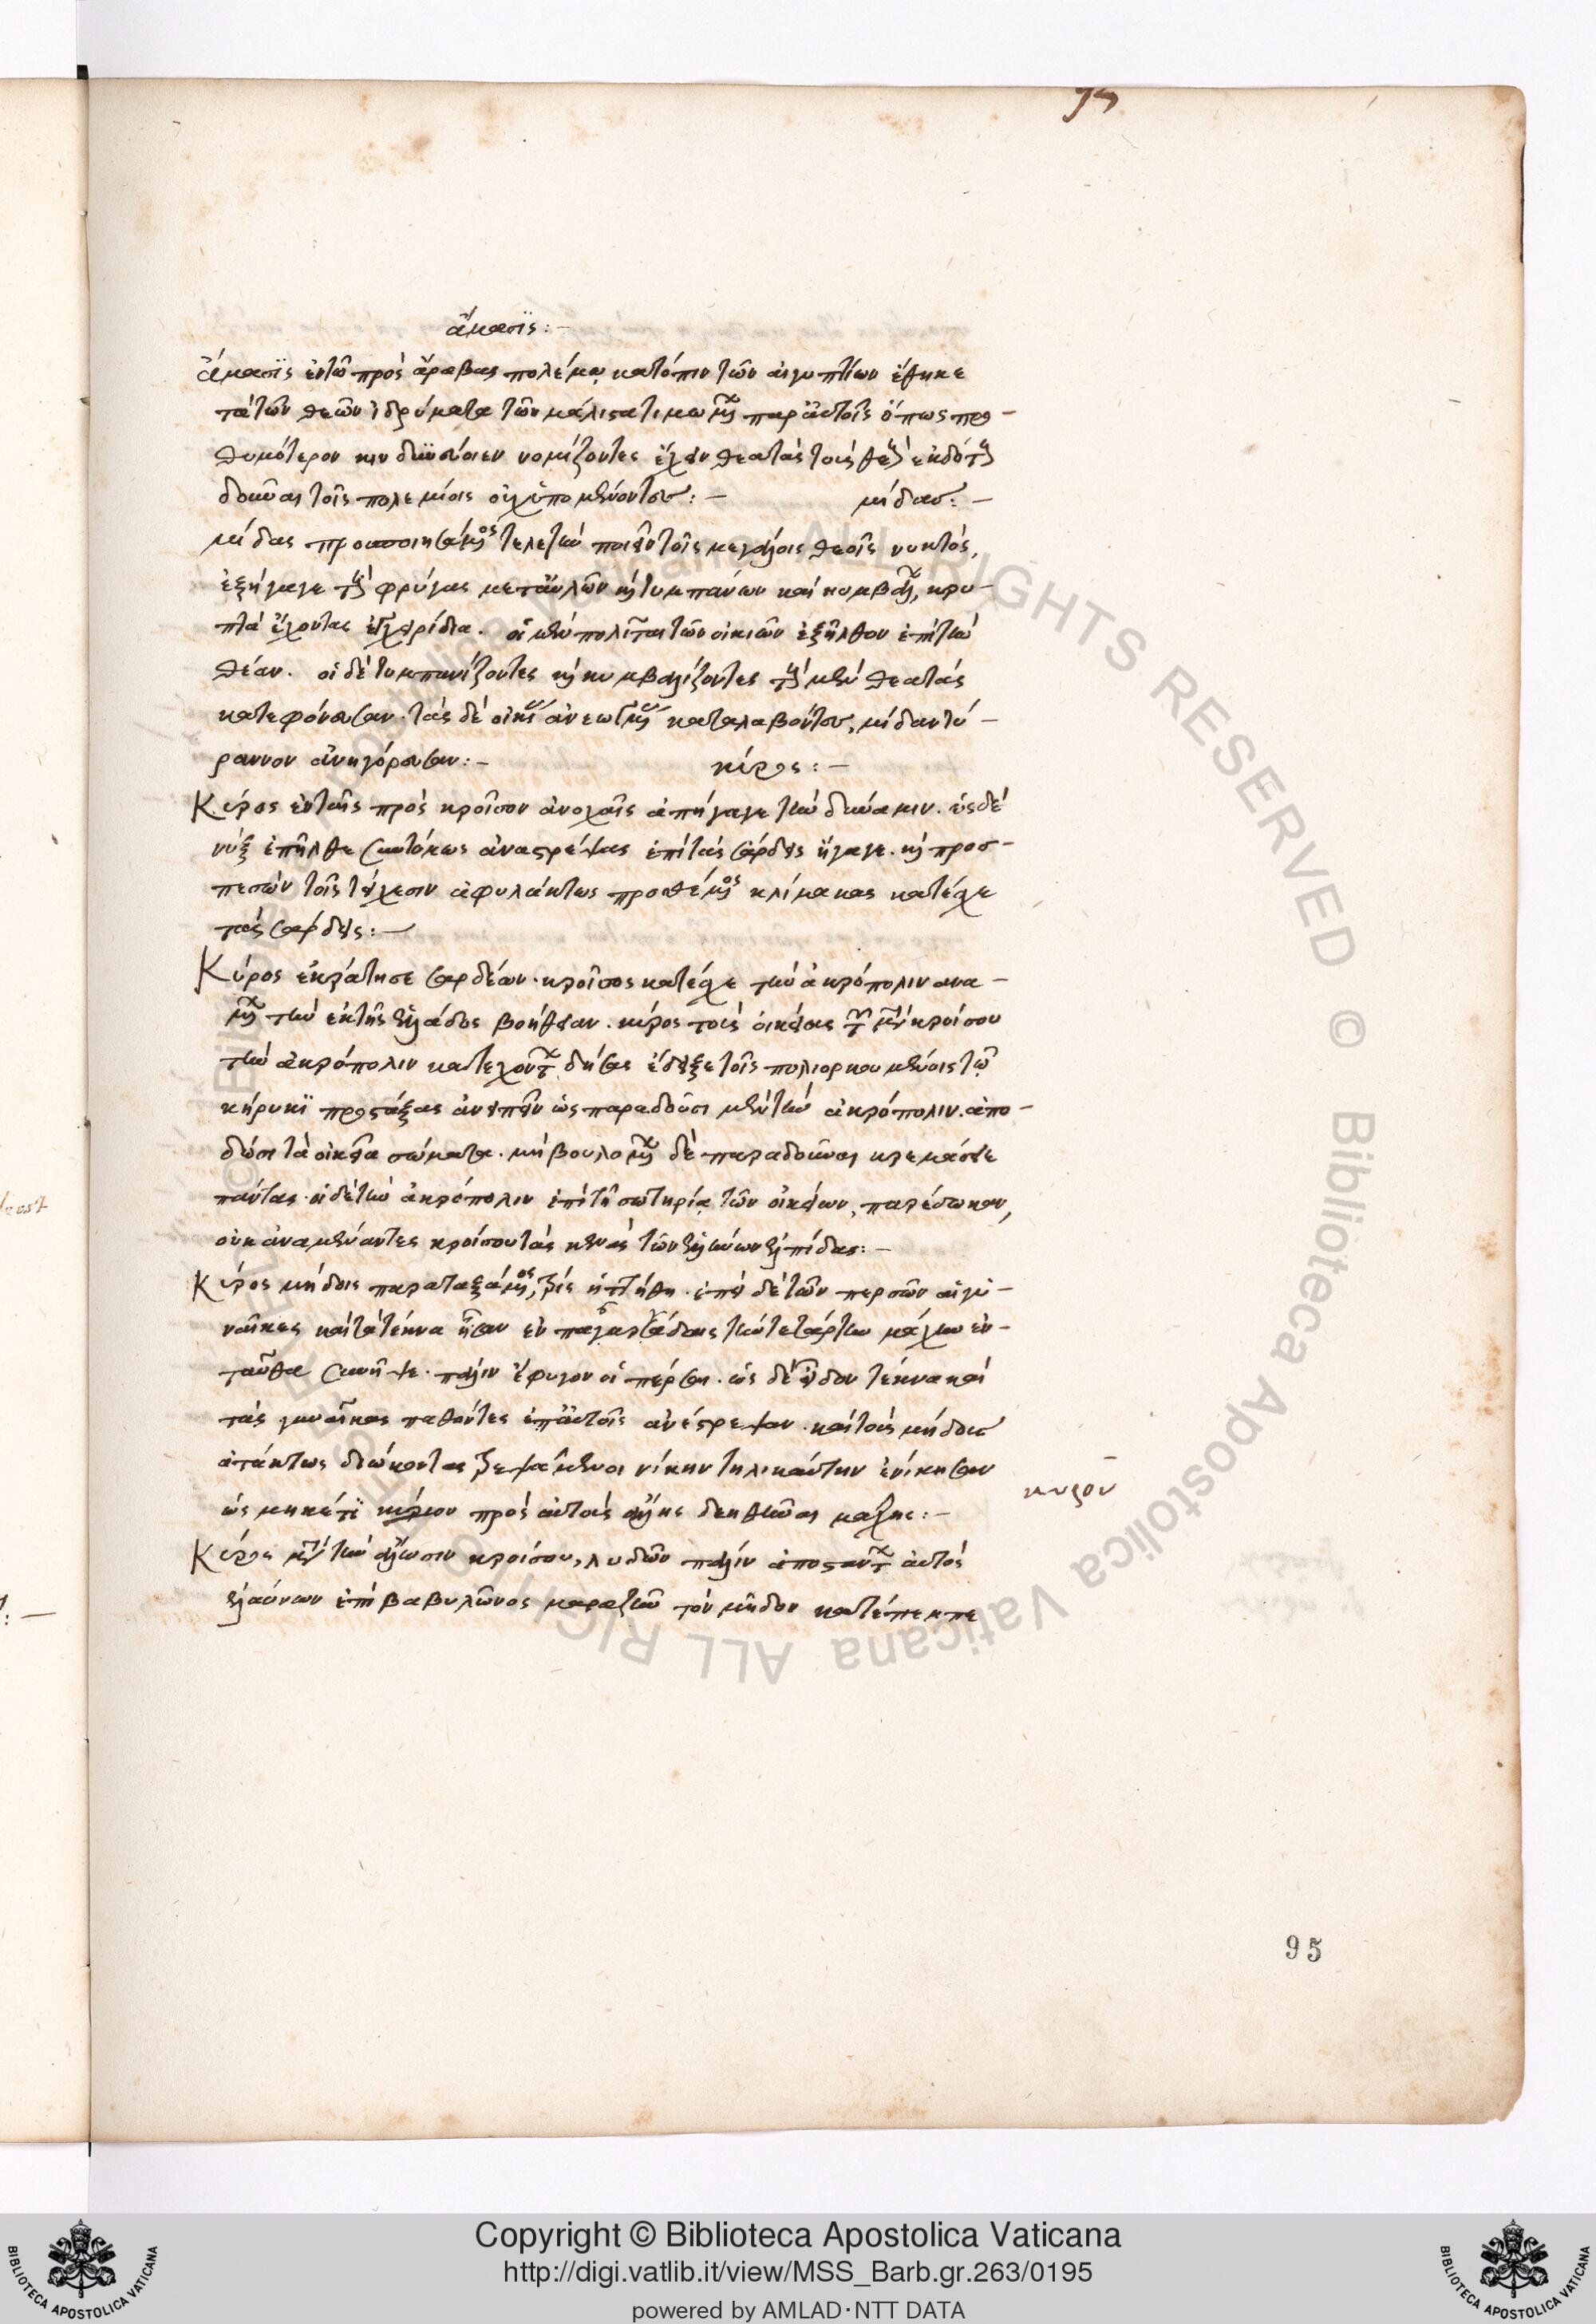 95
ἄμασϊς:—
Ἄμασϊς ἐν τῶ πρὸς ἄραβας πολέμω, κατόπιν τῶν αἰγυπτίων ἔθηκε
τὰ τῶν θεῶν ἱδρύματα τῶν μάλιστα τιμωμένων παρ' αὐτοῖς ὅπως προ-
θυμότερον κινδυνεύοιεν νομίζοντες ἔχειν θεατὰς τοὺς θεοὺς ἐκδότους
δοῦναι τοῖς πολεμίοις οὐχ ὑπομένοντες:— μίδας:—
μίδας προσποιησάμενος τελετὴν ποιεῖν τοῖς μεγάλοις θεοῖς νυκτὸς,
ἐξήγαγε τοὺς φρύγας μετ' αὐλῶν καὶ τυμπάνων καὶ κυμβάλων, κρυ-
πτὰ ἔχοντας ἐγχειρίδια. οἱ μὲν πολῖται τῶν οἰκιῶν ἐξῆλθον ἐπὶ τὴν
θέαν. οἱ δὲ τυμπανίζοντες καὶ κυμβαλίζοντες τοὺς μὲν θεατὰς
κατεφόνευσαν. τὰς δὲ οἰκίας ἀνεωγμένας καταλαβόντες, μίδαν τύ-
ραννον ἀνηγόρευσαν:— κύρος:—
Κύρος ἐν ταῖς πρὸς κροῖσον ἀνοχαῖς ἀπήγαγε τὴν δύναμιν. ὡς δὲ
νὺξ ἐπῆλθε συντόνως ἀναστρέψας ἐπὶ τὰς σάρδεις ἤγαγε. καὶ προσ-
πεσὼν τοῖς τείχεσιν ἀφυλάκτως προσθέμενος κλίμακας κατέσχε
τὰς σάρδεις:—
Κύρος ἐκράτησε σαρδέων. κροῖσος κατέσχε τὴν ἀκρόπολιν ανα-
μένων τὴν ἐκ τῆς ἑλλάδος βοήθειαν. κύρος τοὺς οἰκείους τῶν μετὰ κροίσου
τὴν ἀκρόπολιν κατεχόντων δήσας ἔδειξε τοῖς πολιορκουμένοις τῶ
κήρυκϊ προστάξας ἀνειπεῖν ὡς παραδοῦσι μὲν τὴν ἀκρόπολιν. ἀπο-
δώσει τὰ οἰκεῖα σώματα. μὴ βουλομένων δὲ παραδοῦναι κρεμάσειε
πάντας. οἱ δὲ τὴν ἀκρόπολιν ἐπὶ τῆ σωτηρία τῶν οἰκείων, παρέδωκαν,
οὐκ ἀναμείναντες κροίσου τὰς κενὰς τῶν ἑλλήνων ἐλπίδας:—
Κύρος μήδοις παραταξάμενος, τρὶς ἡττήθη. ἐπεὶ δὲ τῶν περσῶν αἱ γυ-
ναῖκες καὶ τὰ τέκνα ἦσαν ἐν πασαργάδαις τὴν τετάρτην μάχην ἐν-
ταῦθα συνῆψε. πάλιν ἔφυγον οἱ πέρσαι. ὡς δὲ εἶδον τέκνα καὶ
τὰς γυναῖκας παθόντες ἐπ' αὐτοῖς ἀνέστρεψαν. καὶ τοὺς μήδους
ἀτάκτως διώκοντας τρεψάμενοι νίκην τηλικαύτην ἐνίκησαν
ὡς μηκέτϊ κύριον πρὸς αὐτοὺς ἄλλης δεηθῆναι μάχης:—
κυρον
Κύρος μετὰ τὴν ἅλωσιν κροίσου, λυδῶν πάλιν ἀποστάντων αὐτὸς
ἐλαύνων ἐπὶ βαβυλῶνος μαραζὴν τὸν μῆδον κατέπεμπε
95
Copyright © Biblioteca Apostolica Vaticana
http://digi.vatlib.it/view/MSS_Barb.gr.263/0195
powered by AMLAD·NTT DATA